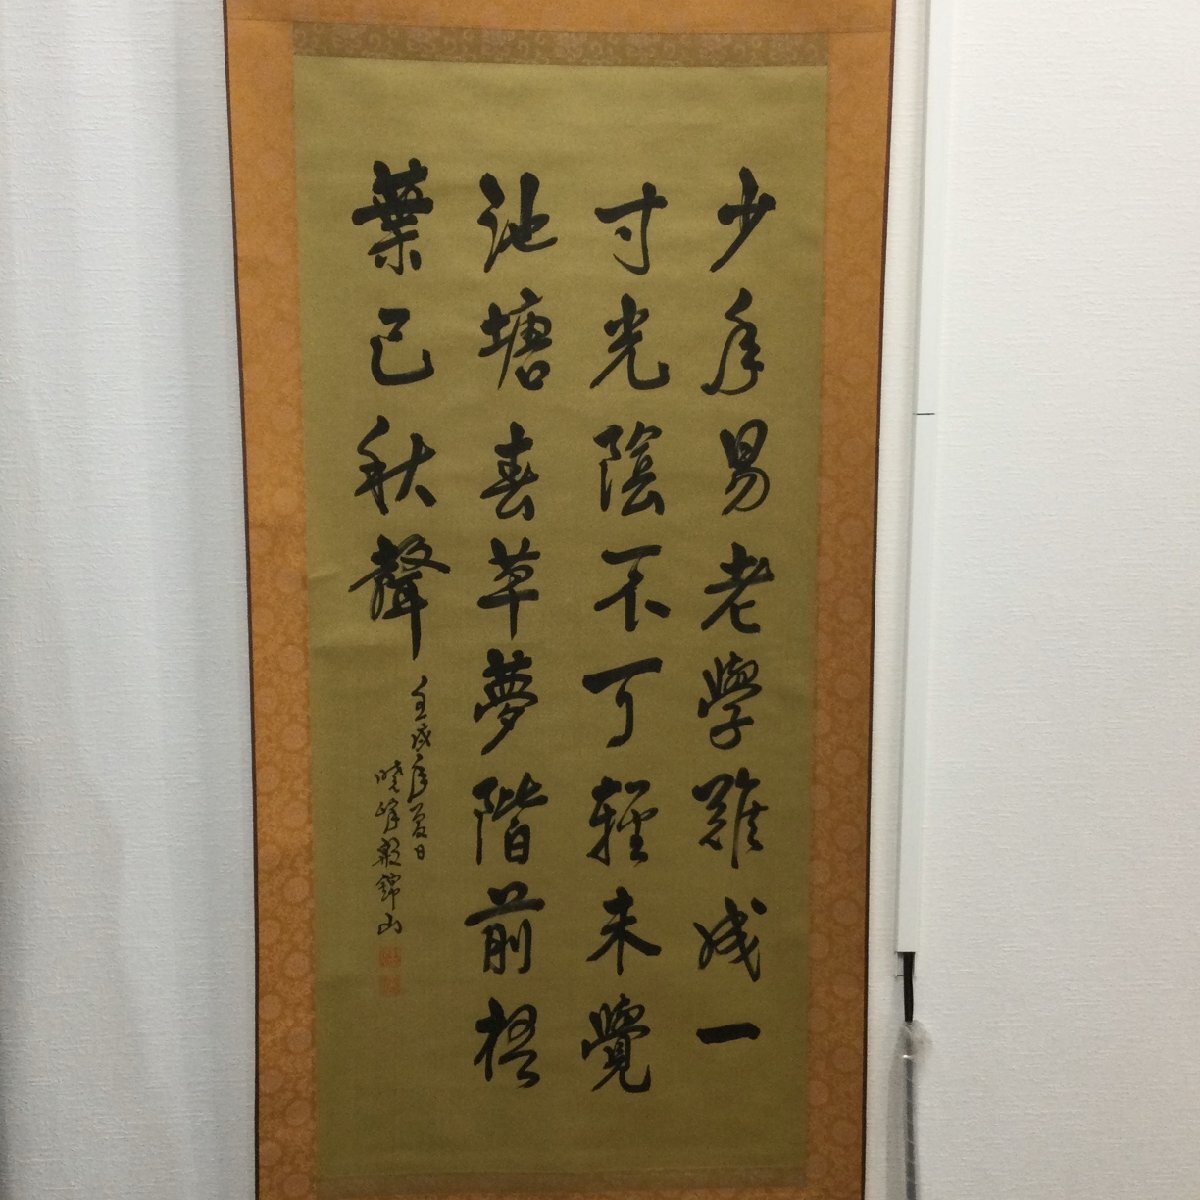 少年易老學難成一
寸光陰不可輕未覺
池塘春草夢階前梧
葉已秋聲
壬戌年夏日
曉峰殷錦山